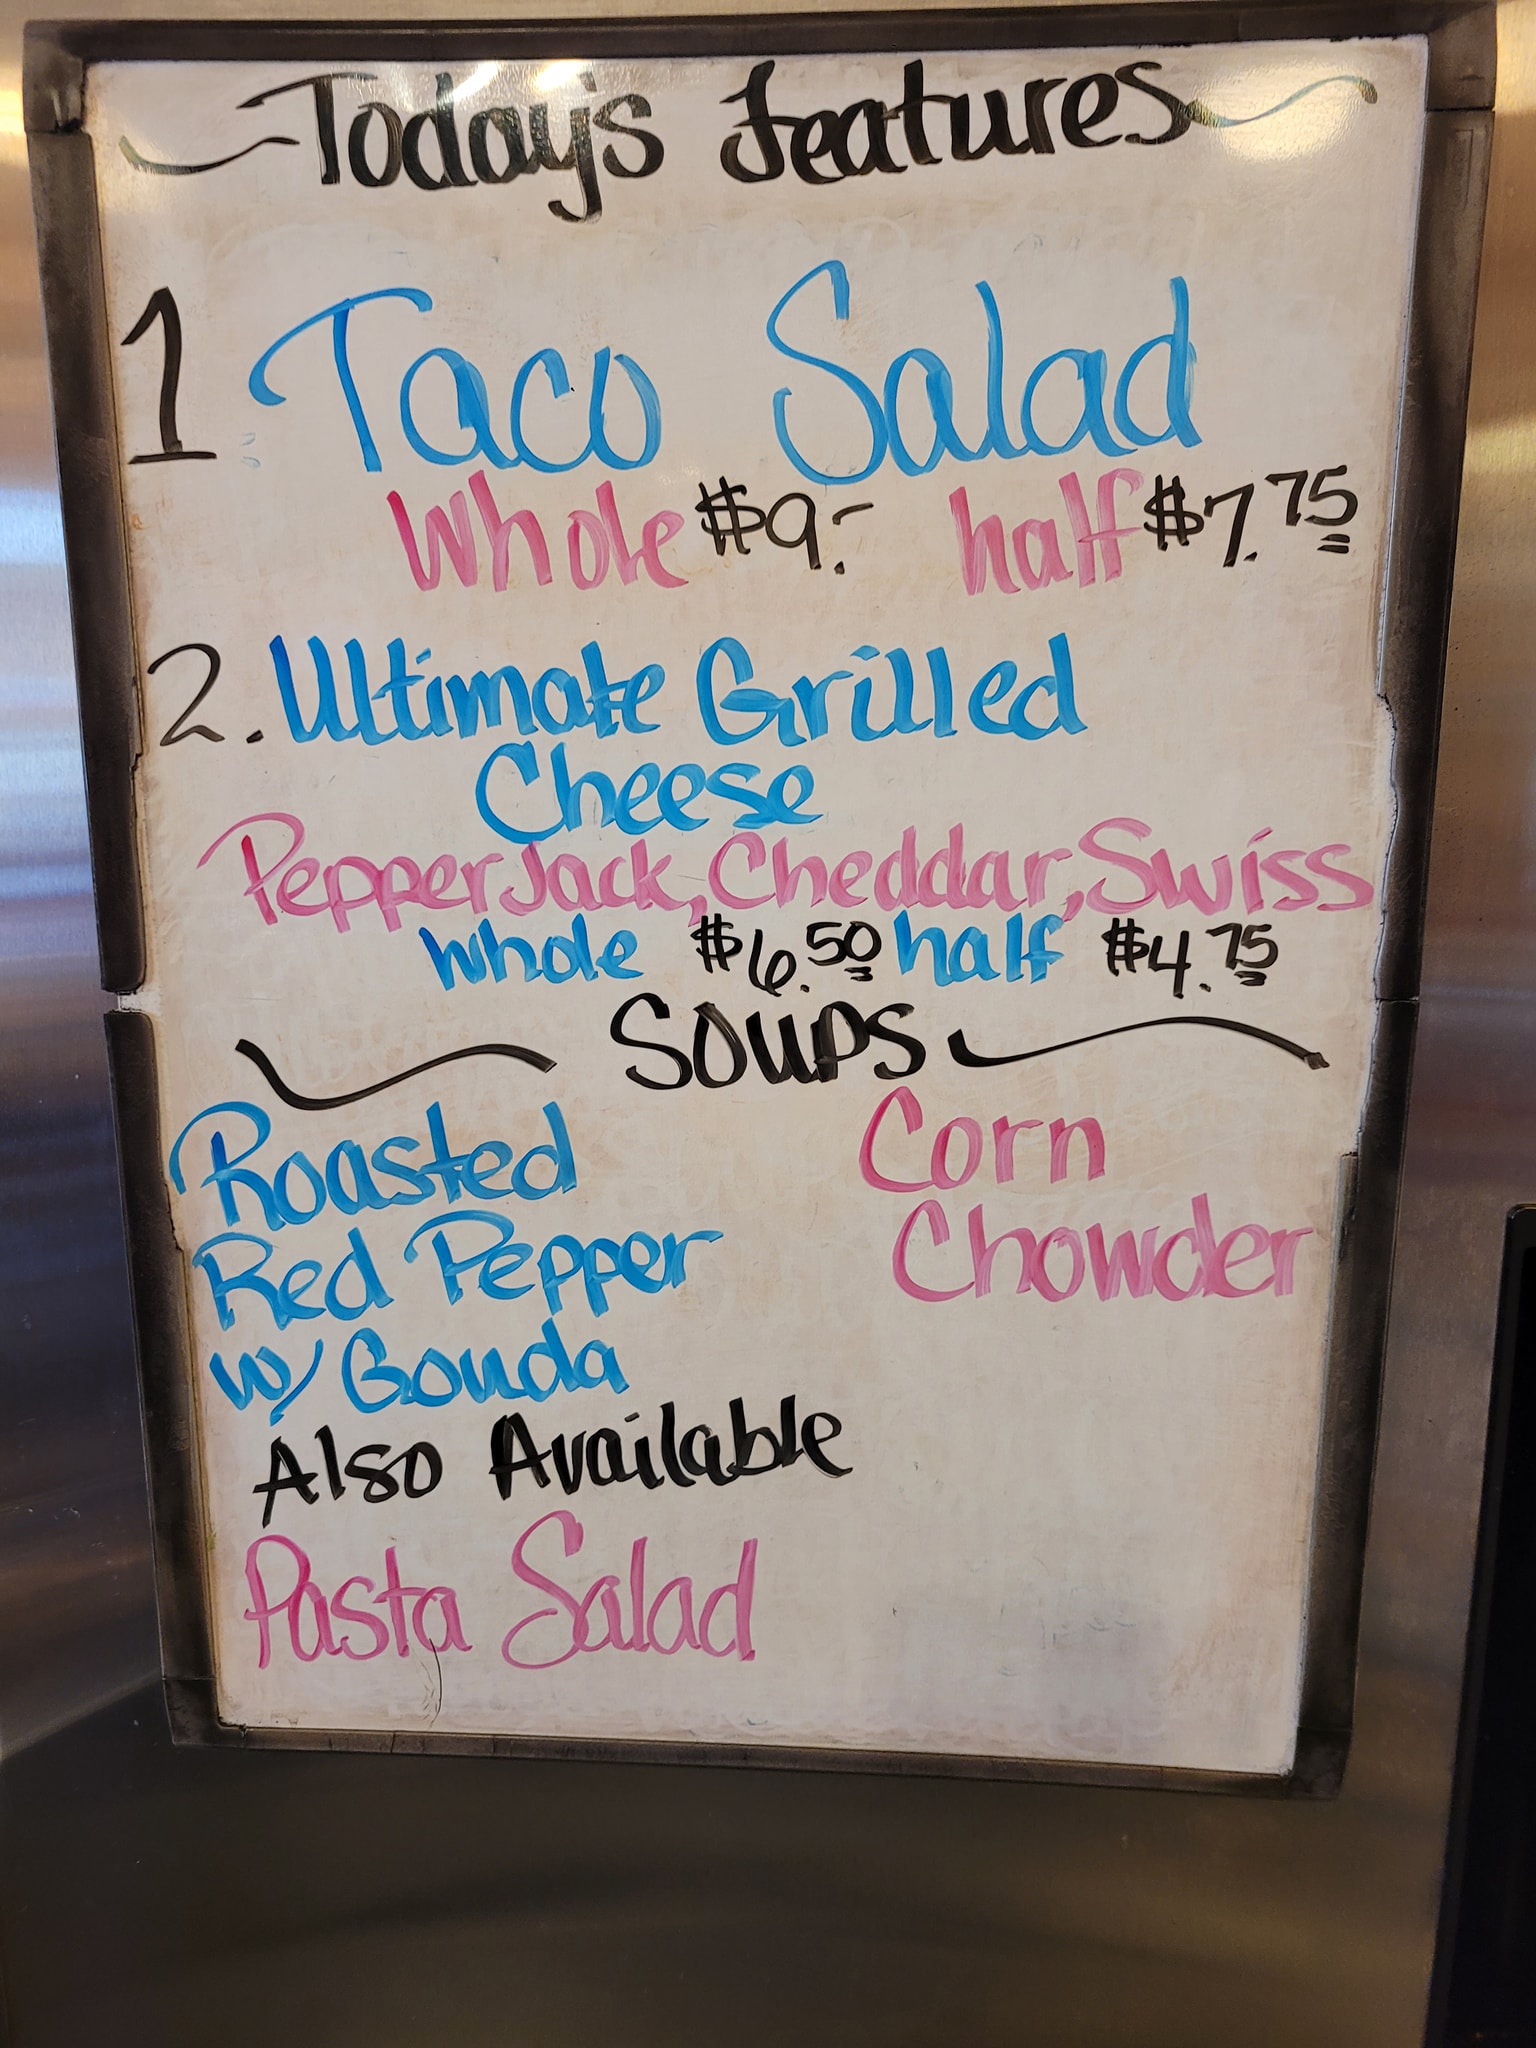 Today's Features
1. Taco Salad
Whole $9.- half $7.75
2. Ultimate Grilled
Cheese
Pepper Jack, Cheddar, Swiss
whole $6.50 half $4.75
Soups
Roasted
Red Pepper
w/ Gouda
Corn
Chowder
Also Available
Pasta Salad